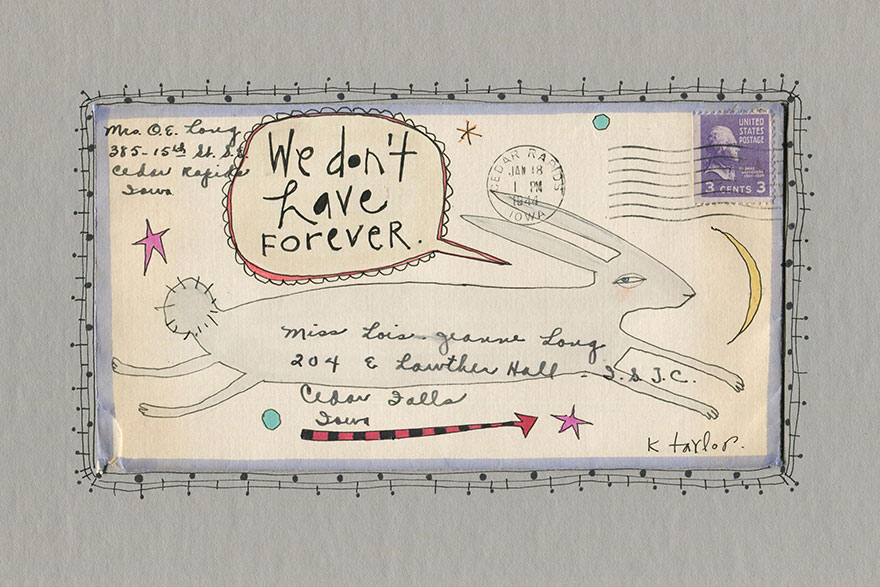 Mrs. O.E. Long
385-15th St. S.E.
Cedar Rapids
Iowa
We don't
have
FOREVER.
CEDAR RAPIDS
JAN 18
1 PM
1944
IOWA
UNITED
STATES
POSTAGE
3 CENTS 3
Miss Lois-Jeanne Long
204 E Lawther Hall - I.S.T.C.
Cedar Falls
Iowa
K Taylor.